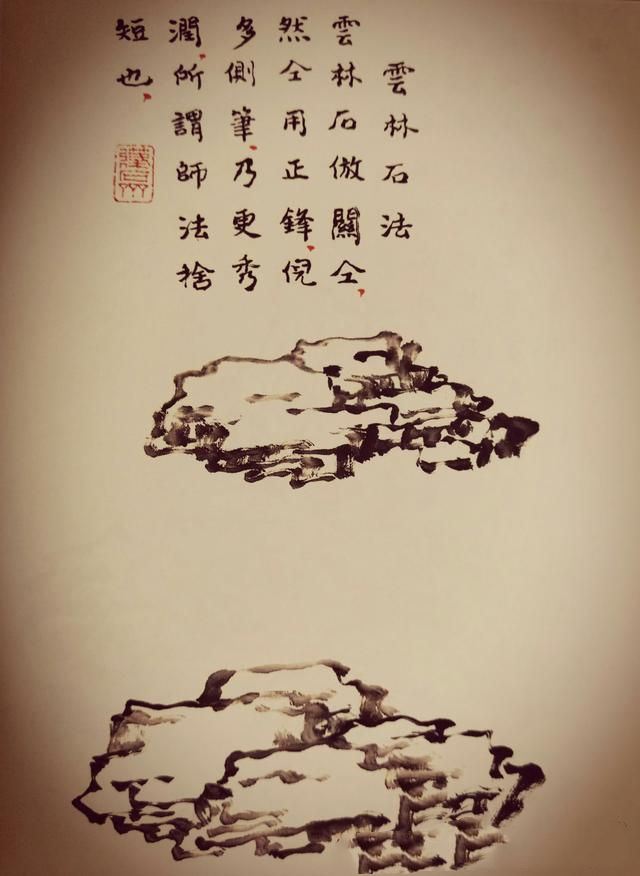 雲林石法
雲林石倣關仝、
然仝用正鋒、倪
多側筆、乃更秀
潤、所謂師法捨
短也、